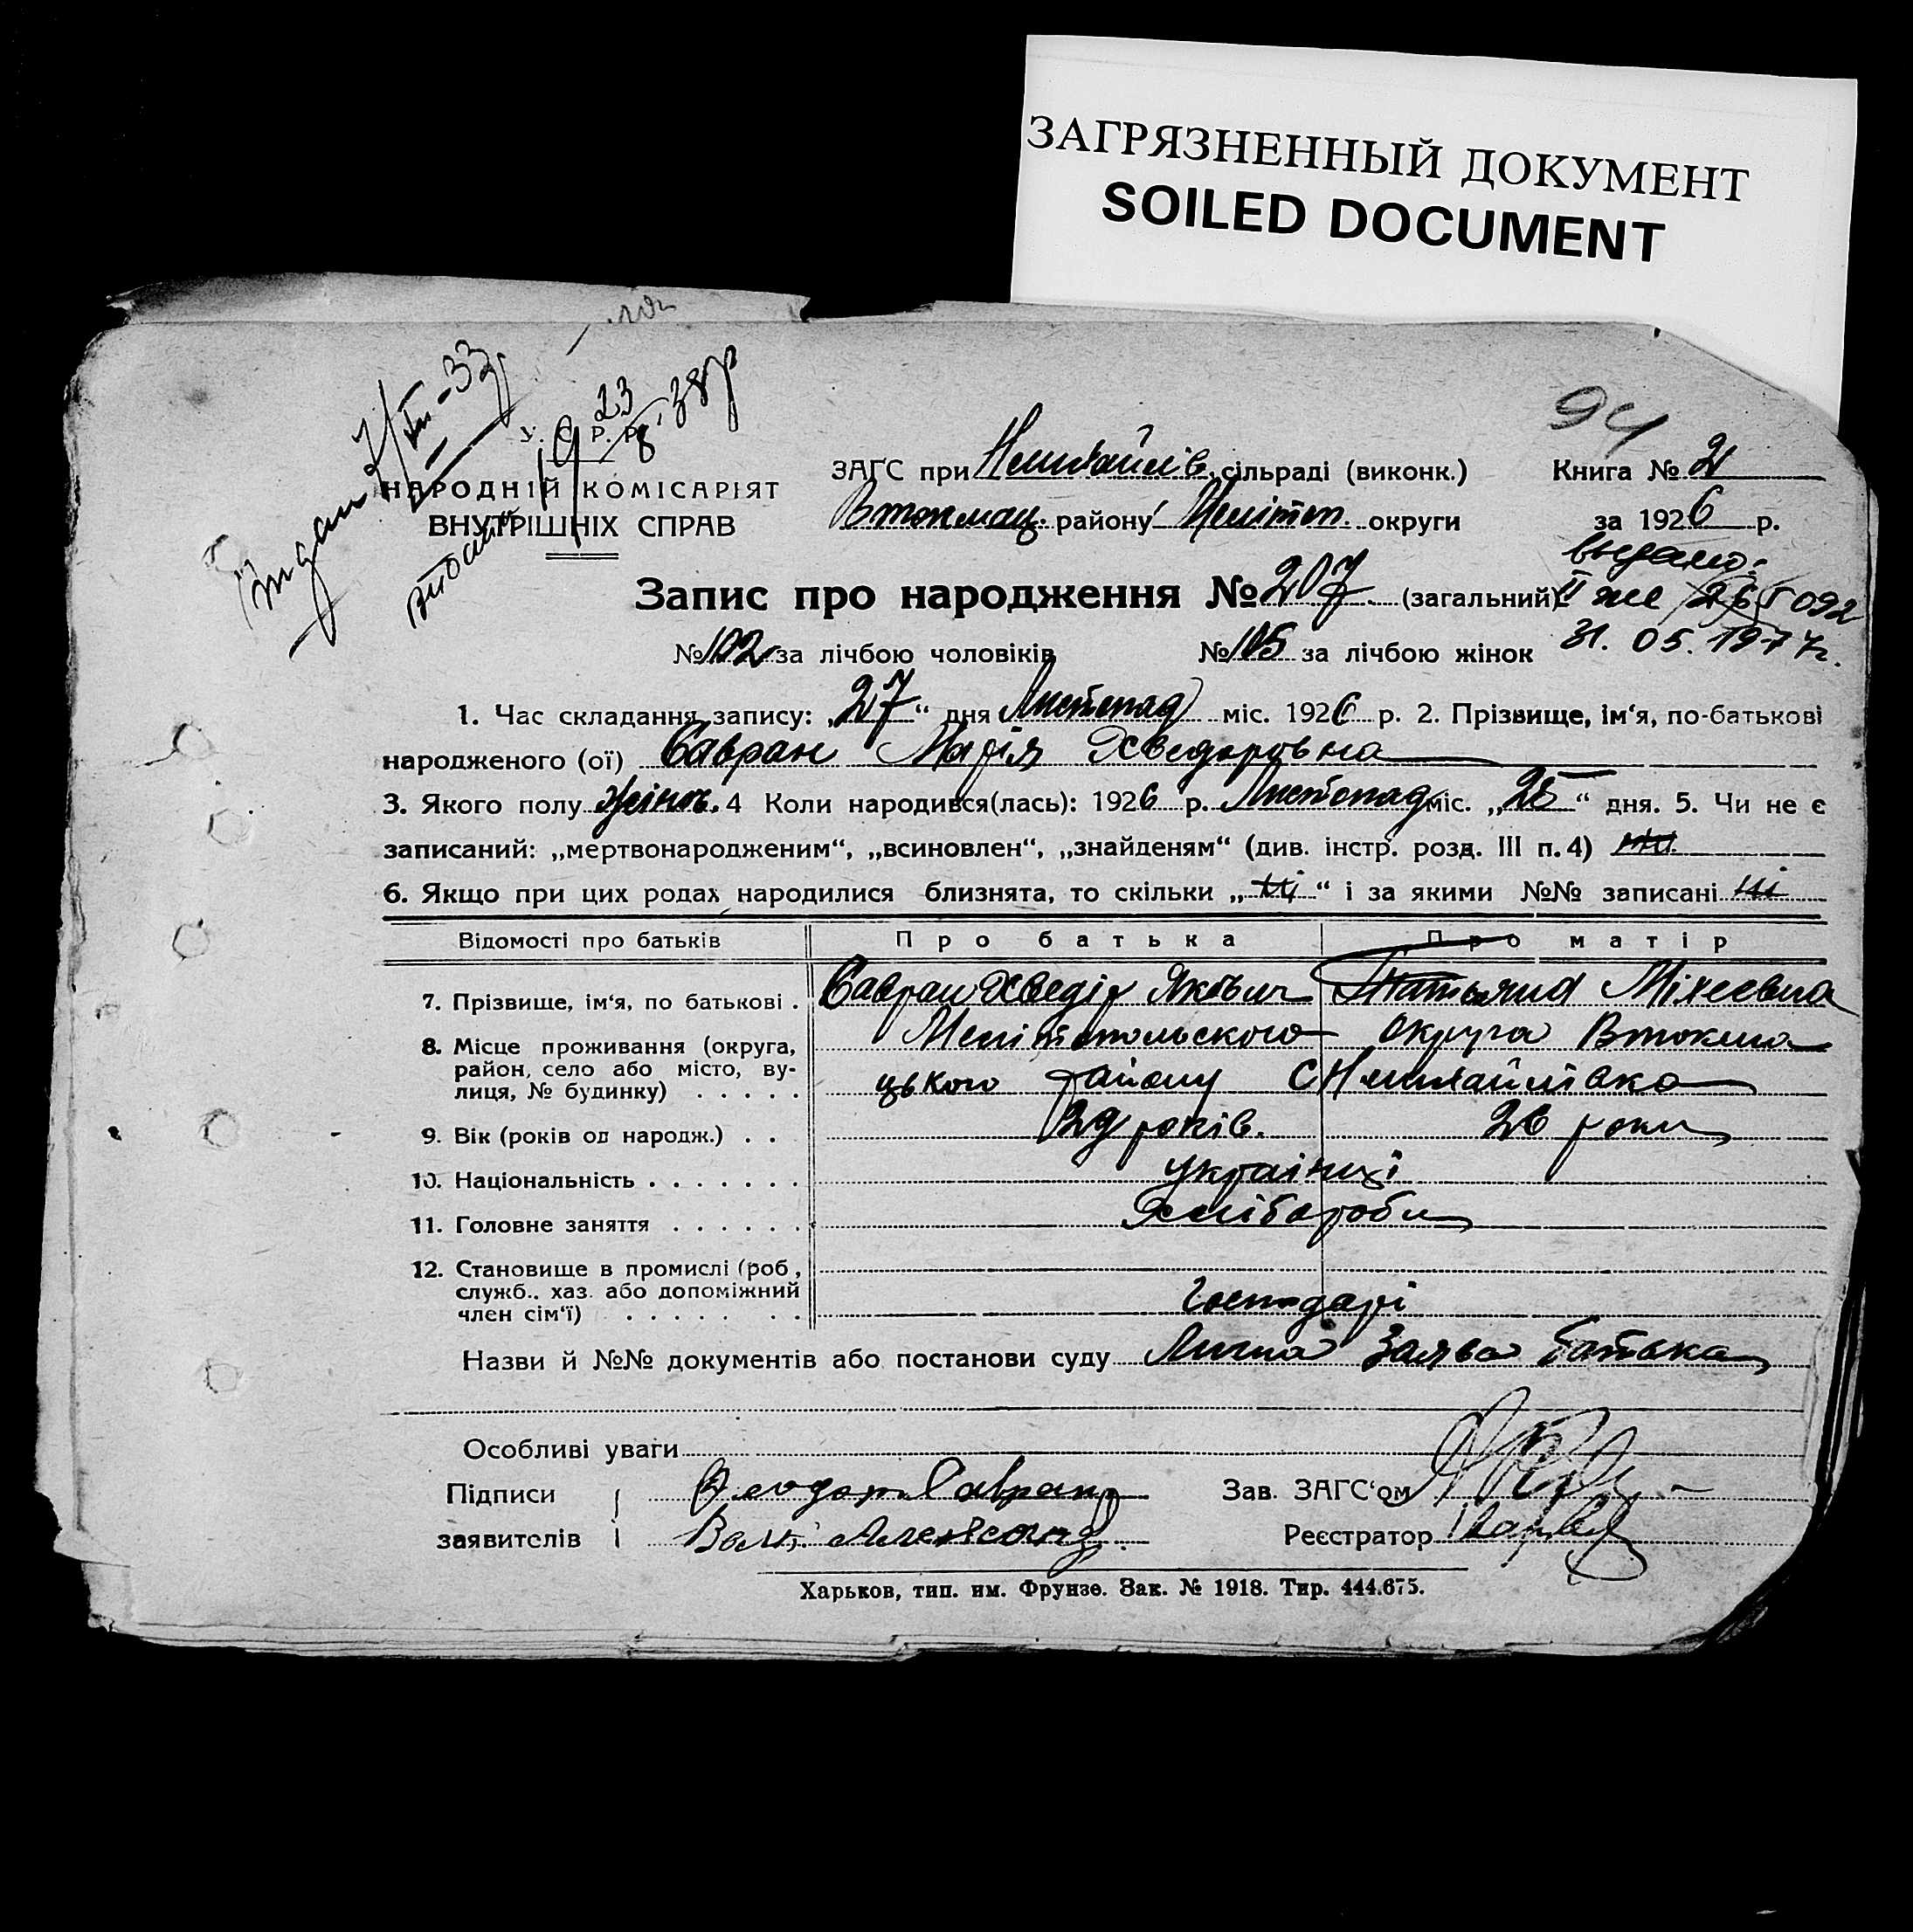 ЗАГРЯЗНЕННЫЙ ДОКУМЕНТ
SOILED DOCUMENT
94
У. С. Р. Р.
НАРОДНІЙ КОМІСАРІЯТ
ВНУТРІШНІХ СПРАВ
ЗАГС при сільраді (виконк.) Книга № 2
Втокмац. району Меліт. округи за 1926 р.
выдано:
Запис про народження № 207 (загальний)
31. 05. 1977г.
№ 102 за лічбою чоловіків № 105 за лічбою жінок
1. Час складання запису: „27“ дня Листопад міс. 1926 р. 2. Прізвище, ім‘я, по-батькові
народженого (ої) Савран Марія Хведоровна
3. Якого полу жіноч. 4 Коли народився(лась): 1926 р. Листопад міс. „25“ дня. 5. Чи не є
записаний: „мертвонародженим“, „всиновлен“, „знайденям“ (див. інстр. розд. III п. 4) ні
6. Якщо при цих родах народилися близнята, то скільки „ні“ і за якими №№ записані ні
Відомості про батьків Про батька Про матір
7. Прізвище, ім‘я, по батькові . Савран Хведір Якович Татьяна Міхеевна
8. Місце проживання (округа, Мелітопольского округа Втокма
район, село або місто, ву-
лиця, № будинку) . . . . . цького району
9. Вік (років од народж.) . . 29 років. 26 роки
10. Національність . . . . . . . українці
11. Головне заняття . . . . . . Хлібороби
12. Становище в промислі (роб.,
служб.. хаз. або допоміжний
член сім‘ї) . . . . . . . . Господарі
Назви й №№ документів або постанови суду Лична Заява батька
Особливі уваги
Підписи Феодор Савран Зав. ЗАГС‘ом
заявителів Реєстратор
Харьков, тип. им. Фрунзе. Зак. № 1918. Тир. 444.675.